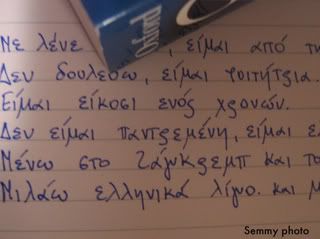 Oxford
Με λένε , είμαι από τη
Δεν δουλεύω, είμαι φοιτήτρια.
Είμαι είκοσι ενός χρονών.
Δεν είμαι παντρεμένη, είμαι ε
Μένω στο Ζάγκρεμπ και το
Μιλάω ελληνικά λίγο. και μ
Semmy photo